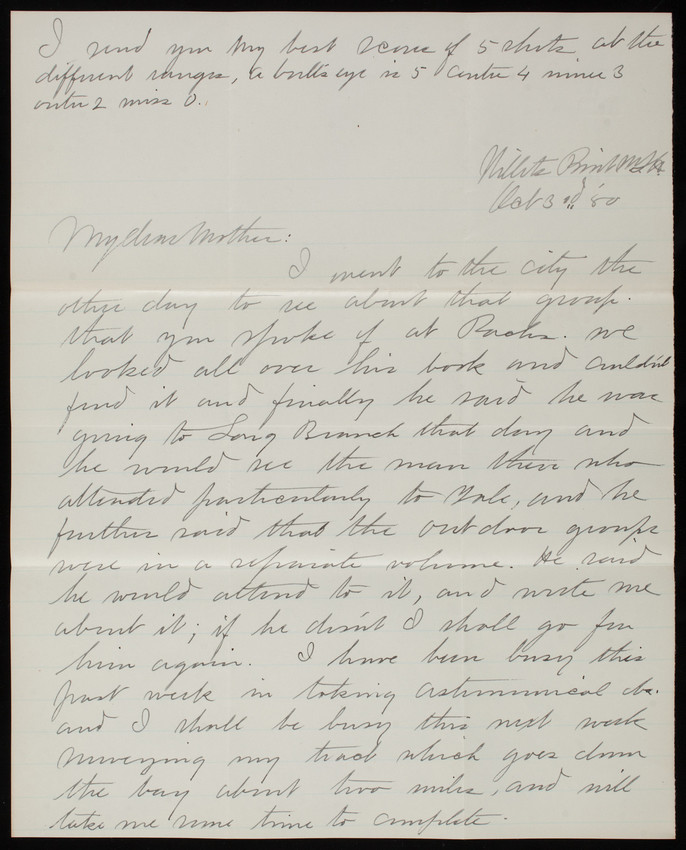 I send you my best scores of 5 shots at the
different ranges, a bulls eye is 5 centre 4 inner 3
outer 2 miss 0.
Willets Point N.Y.H.
Oct 3rd '80
My dear Mother:
I went to the city the
other day to see about that group
that you spoke of at Pachs. we
looked all over his book and couldn't
find it and finally he said he was
going to Long Branch that day and
he would see the man there who
attended particularly to Yale, and he
further said that the outdoor groups
were in a separate volume. He said
he would attend to it, and write me
about it; if he dosn't I shall go for
him again. I have been busy this
past week in taking astronomical obs.
and I shall be busy this next week
surveying my tract which goes down
the bay about two miles, and will
take me some time to complete.